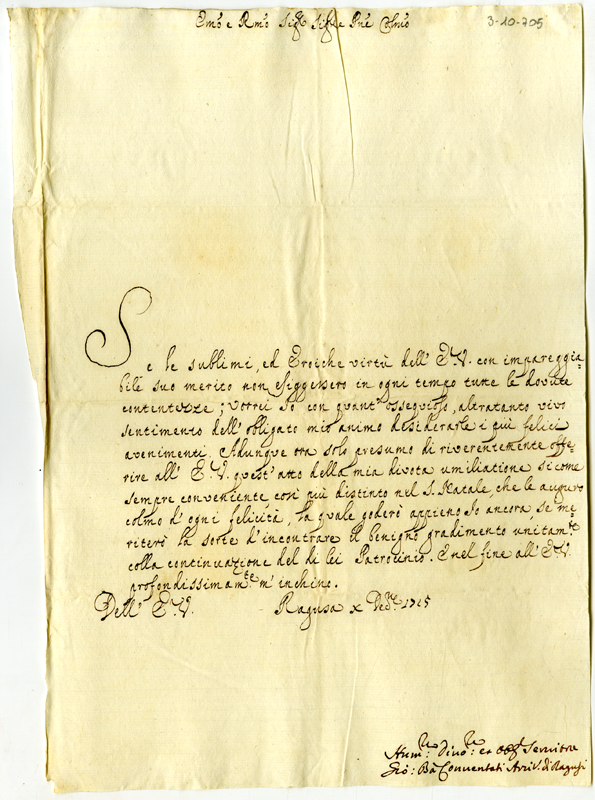 Em͞o e Rm͞o Sig͞r Sig͞r e Pn͞e Colm͞o
3-10-705
Se le sublimi, ed Eroiche virtù dell' E.V. con impareggia=
bile suo merito non esiggessero in ogni tempo tutte le dovute
contentezze; vorrei Io con quant' ossequioso, altratanto vivo
sentimento dell' obligato mio animo desiderarle i più felici
avenimenti. Adunque ora solo presumo di riverentemente offe=
rire all' E.V. quest' atto della mia divota umiliatione sicome
sempre conveniente così più distinto nel S. Natale, che le auguro
colmo d' ogni felicità, la quale goderò appieno Io ancora, se me=
riterò la sorte d' incontrare il benigno gradimento unitam.te
colla continuazione del di lei Patrocinio. E nel fine all' E.V.
profondissimam.te m' inchino.
Dell' E.V.
Ragusa x Dec͞bre 1715
Hum: Divo: et Servitore
Gio: Ba Conventati Arciv. di Ragusi